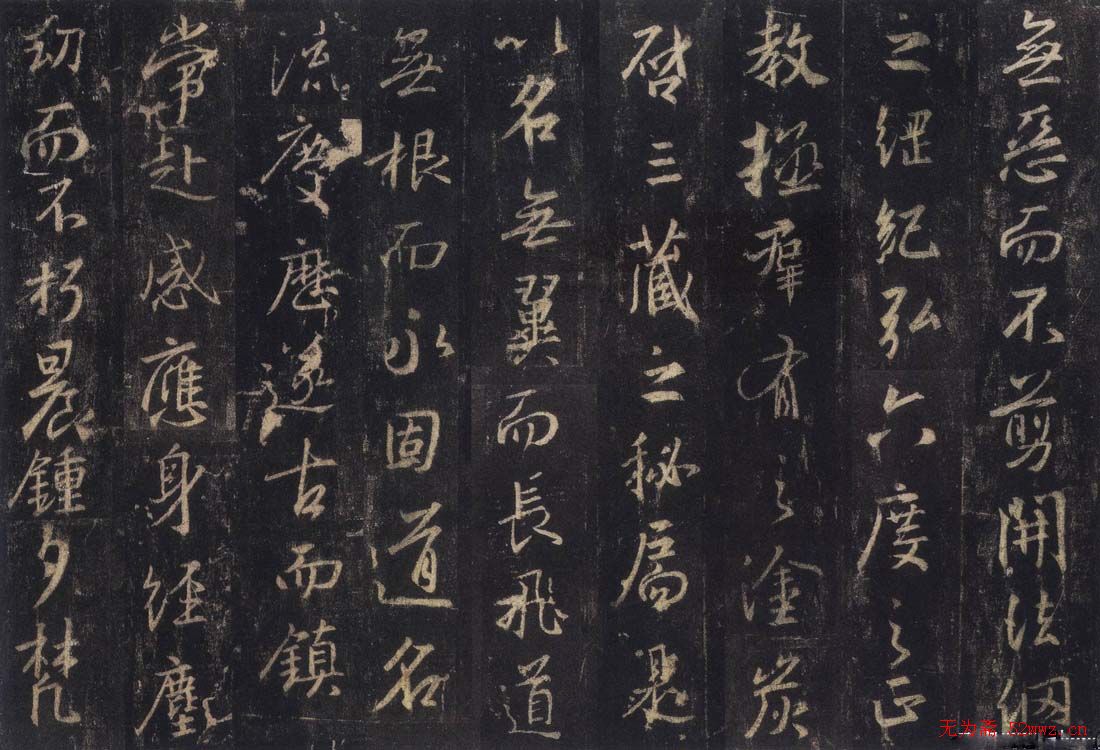 無惡而不剪開法網
之綱紀弘六度之正
教拯羣有之塗炭
啓三藏之秘扃是
以名無翼而長飛道
無根而永固道名
流慶歷遂古而鎮
常赴感應身經塵
劫而不朽晨鍾夕梵
无为斋 52wwz.cn